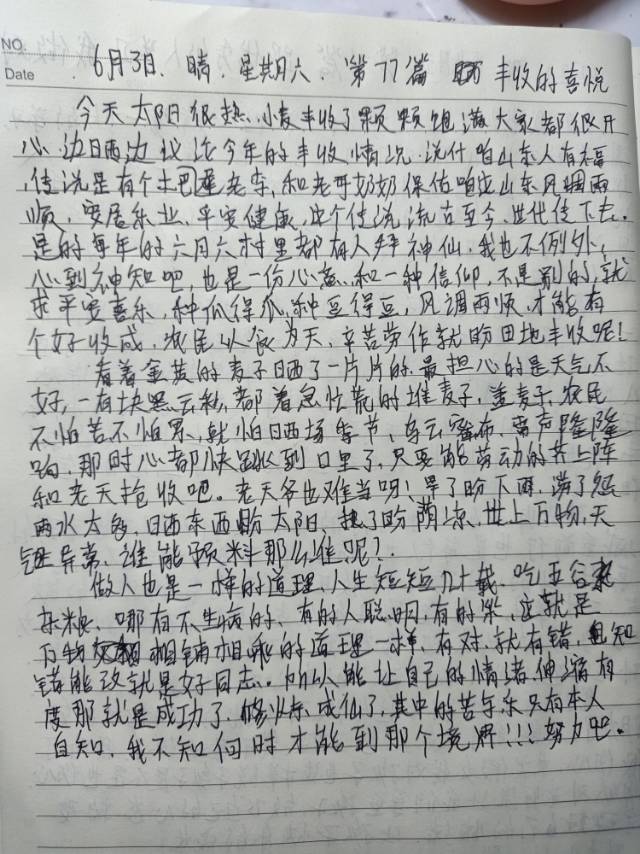 NO.
Date
6月3日. 晴. 星期六. 第77篇 丰收的喜悦
今天太阳很热.小麦丰收了颗颗饱满大家都很开
心.边晒边议论今年的丰收情况.说什咱山东人有福
,传说是有个土巴 老李,和老哥奶奶保佑咱应山东风调雨
顺,安居乐业.平安健康,这个传说流古至今.世代传下去.
是的每年的六月六村里都有人拜神仙.我也不例外,
心到神知吧,也是一份心意.和一种信仰,不是别的,就
求平安喜乐,种瓜得瓜,种豆得豆,风调雨顺,才能有
个好收成.农民以食为天,辛苦劳作就盼田地丰收呢!
看着金黄的麦子晒了一片片的.最担心的是天气不
好,一有块黑云彩,都着急忙慌的堆麦子,盖麦子.农民
不怕苦不怕累,就怕晒场季节,乌云密布,雷声隆隆
响,那时心都快跳到口里了.只要能劳动的齐上阵
和老天抢收吧。老天爷也难当呀!旱了盼下雨,涝了怨
雨水太多,晒东西盼太阳,热了盼荫凉.世上万物,天
气异常,谁能预料那么准呢?
做人也是一样的道理,人生短短几十载,吃五谷
杂粮,哪有不生病的,有的人聪明,有的笨,这就是
万物 相辅相承的道理一样,有对,就有错,知
错能改就是好同志..所以能让自己的情绪伸缩有
度那就是成功了.修炼成仙了,其中的苦与乐只有本人
自知,我不知何时才能到那个境界!!!努力吧。